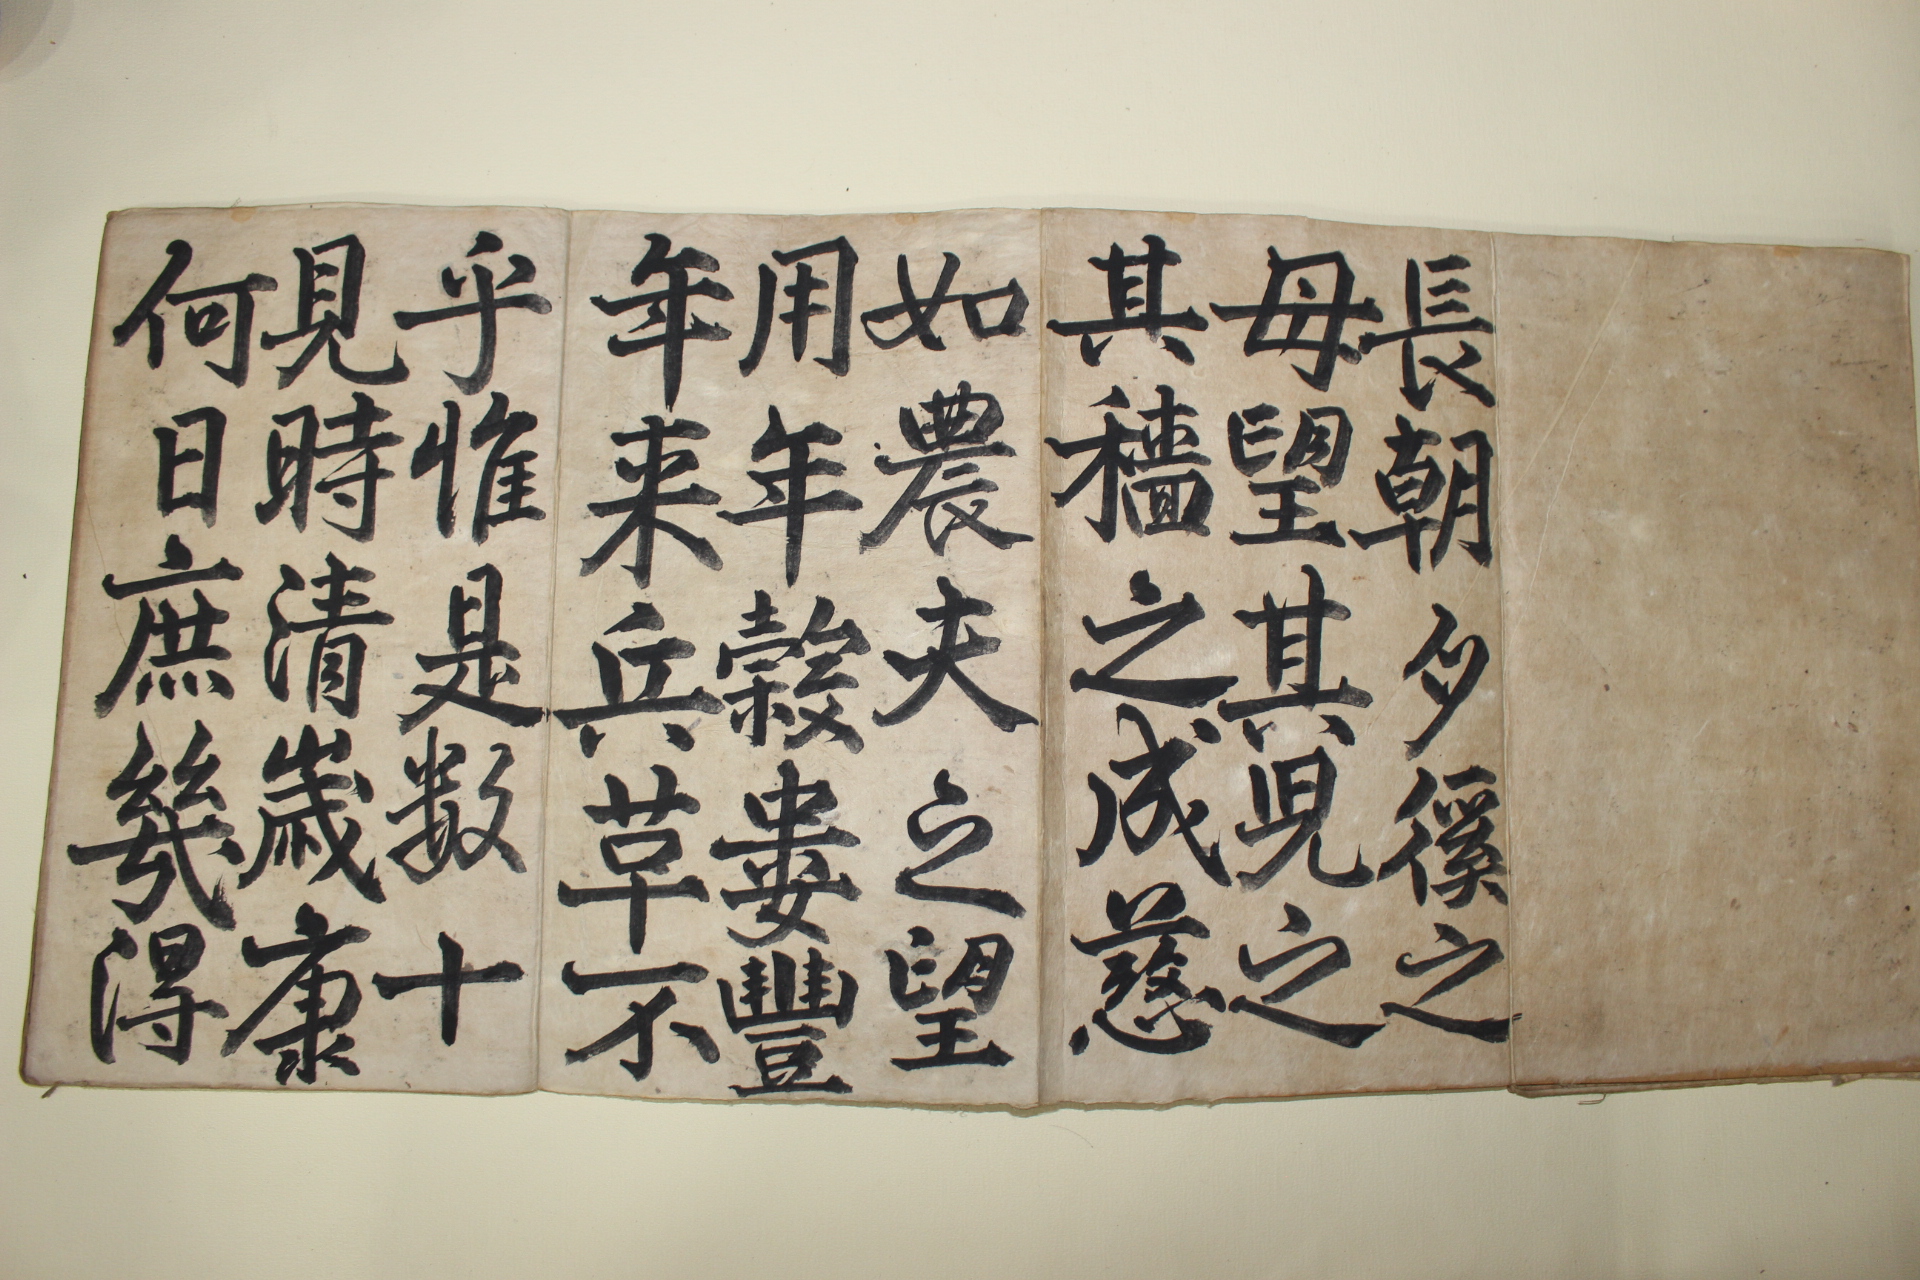 何日庶幾得
見時清歳康
乎惟是数十
年来兵革不
用年穀婁豐
如農夫之望
其穡之成慈
母望其児之
長朝夕徯之